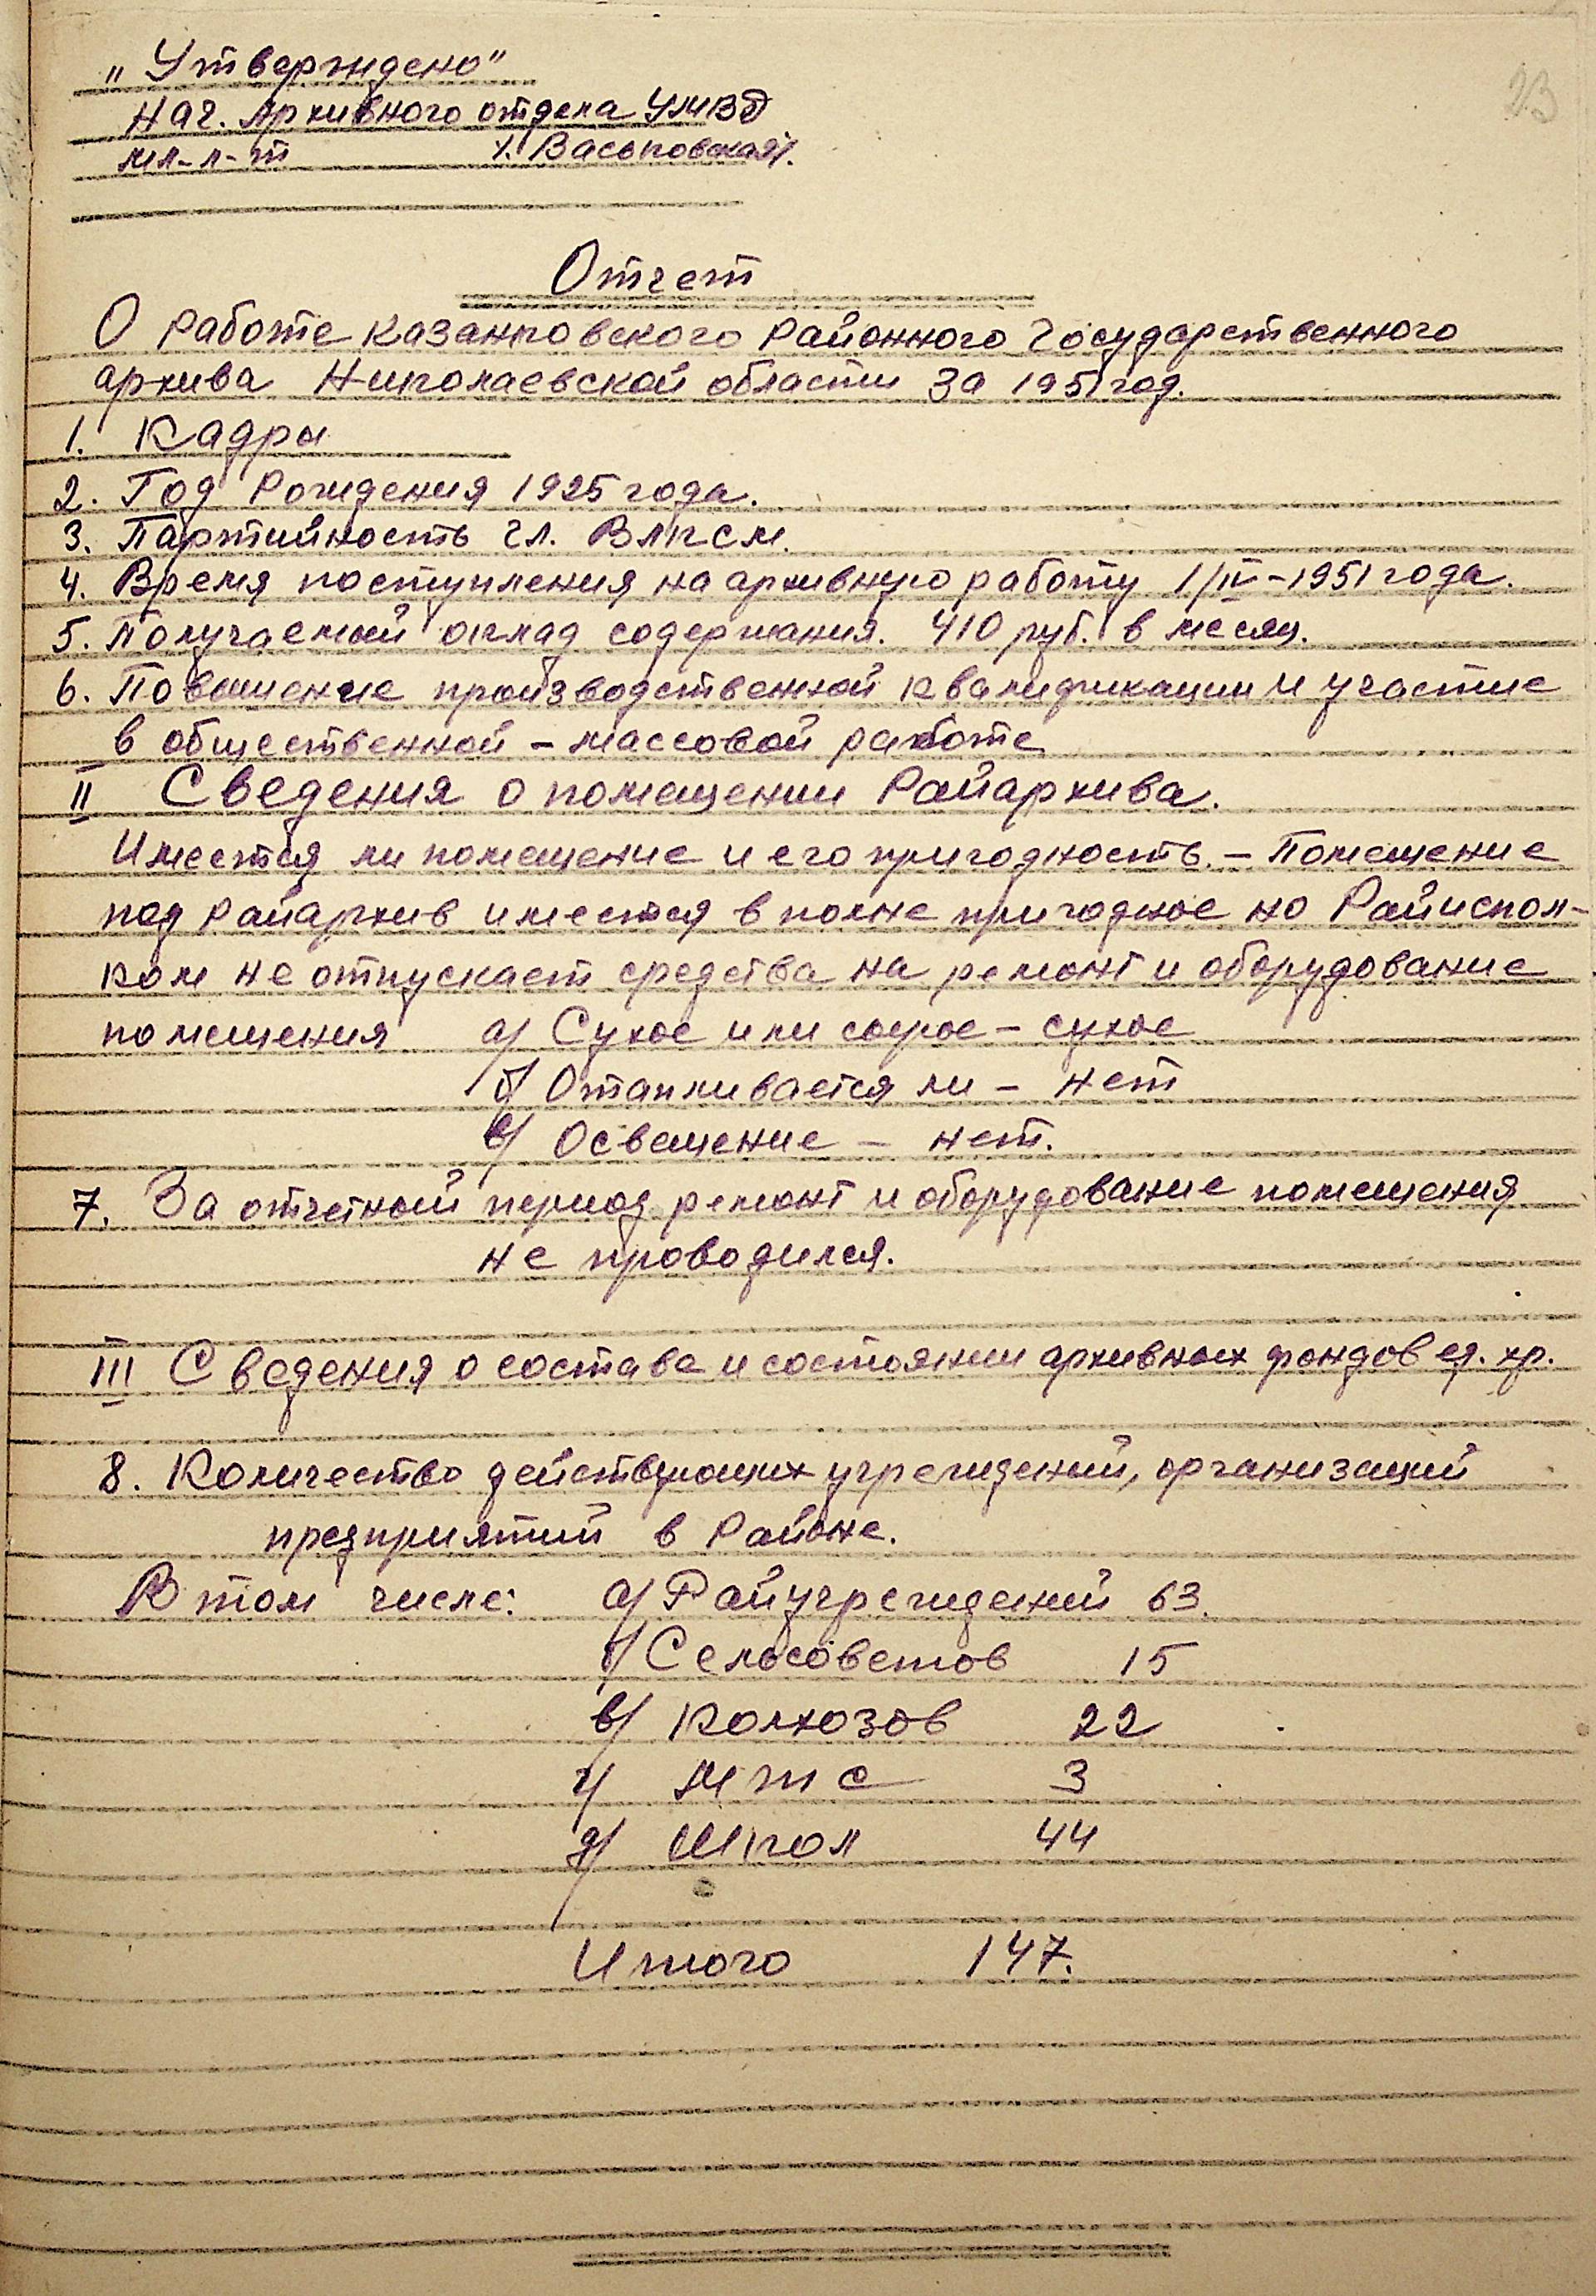 23
„Утверждено"
Нач. Архивного отдела УМВД
мл-л-т /. Васьковская/.
Отчет
О работе Казанковского Районного Государственного
архива Николаевской области за 1951 год.
1. Кадры
2. Год Рождения 1925 года.
3. Партийность чл. ВЛКСМ.
4. Время поступления на архивную работу 1/IV-1951 года.
5. Получаемый оклад содержания. 410 руб. в месяц.
6. Повышение производственной квалификации и участие
в общественной - массовой работе
II Сведения о помещении Райархива.
Имеется ли помещение и его пригодность. - Помещение
под Райархив имеется в полне пригодное но Райиспол-
ком не отпускает средства на ремонт и оборудование
помещения а/ Сухое или сырое - сухое
б/ Отапливается ли - нет
в/ Освещение - нет.
7. За отчетный период ремонт и оборудование помещения
не проводился.
III Сведения о состава и состоянии архивных фондов ед. хр.
8. Количество действующих учреждений, организаций
предприятий в Районе.
В том числе: а/ Райучреждений 63.
б/ Сельсоветов 15
в/ Колхозов 22
г/ МТС 3
д/ Школ 44
Итого 147.